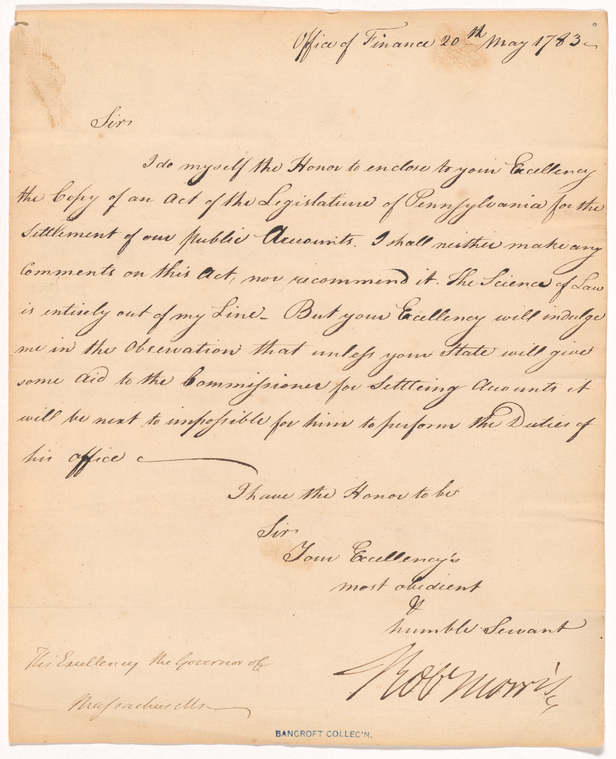 Office of Finance 20th May 1783
Sir
I do myself the Honor to enclose to your Excellency
the Copy of an Act of the Legislature of Pennsylvania for the
Settlement of our public Accounts. I shall neither make any
Comments on this Act, nor recommend it. The Science of Law
is entirely out of my Line – But your Excellency will indulge
me in the Observation that unless your State will give
some Aid to the Commissioner for Settleing Accounts it
will be next to impossible for him to perform the Duties of
his office
I have the Honor to be
Sir
Your Excellency's
most obedient
&
humble Servant
Robt Morris
His Excellency the Governor of
Massachusetts
BANCROFT COLLEC'N.